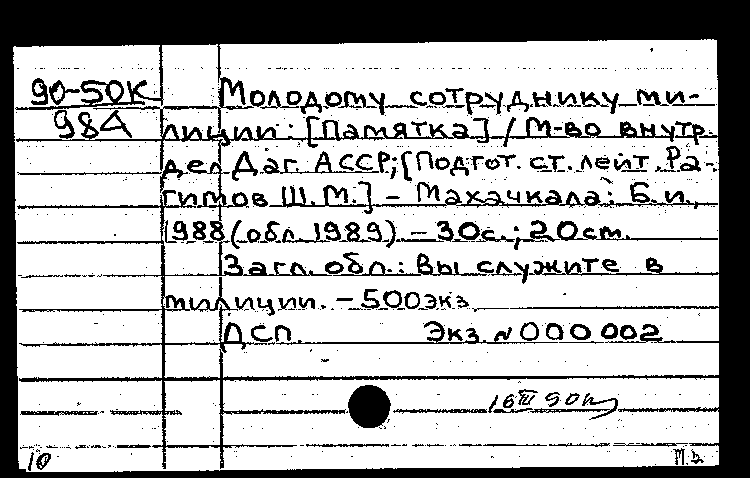 90-50К
984
Молодому сотруднику ми-
лиции: [Памятка] / М-во внутр.
дел Даг. АССР; [Подгот. ст. лейт. Ра-
гимов Ш. М.] – Махачкала: Б. и.,
1988 (обл. 1989). – 30с.; 20см.
Загл. обл.: Вы служите в
милиции. – 500экз.
ДСП. Экз. №000 002
16 III 90
10